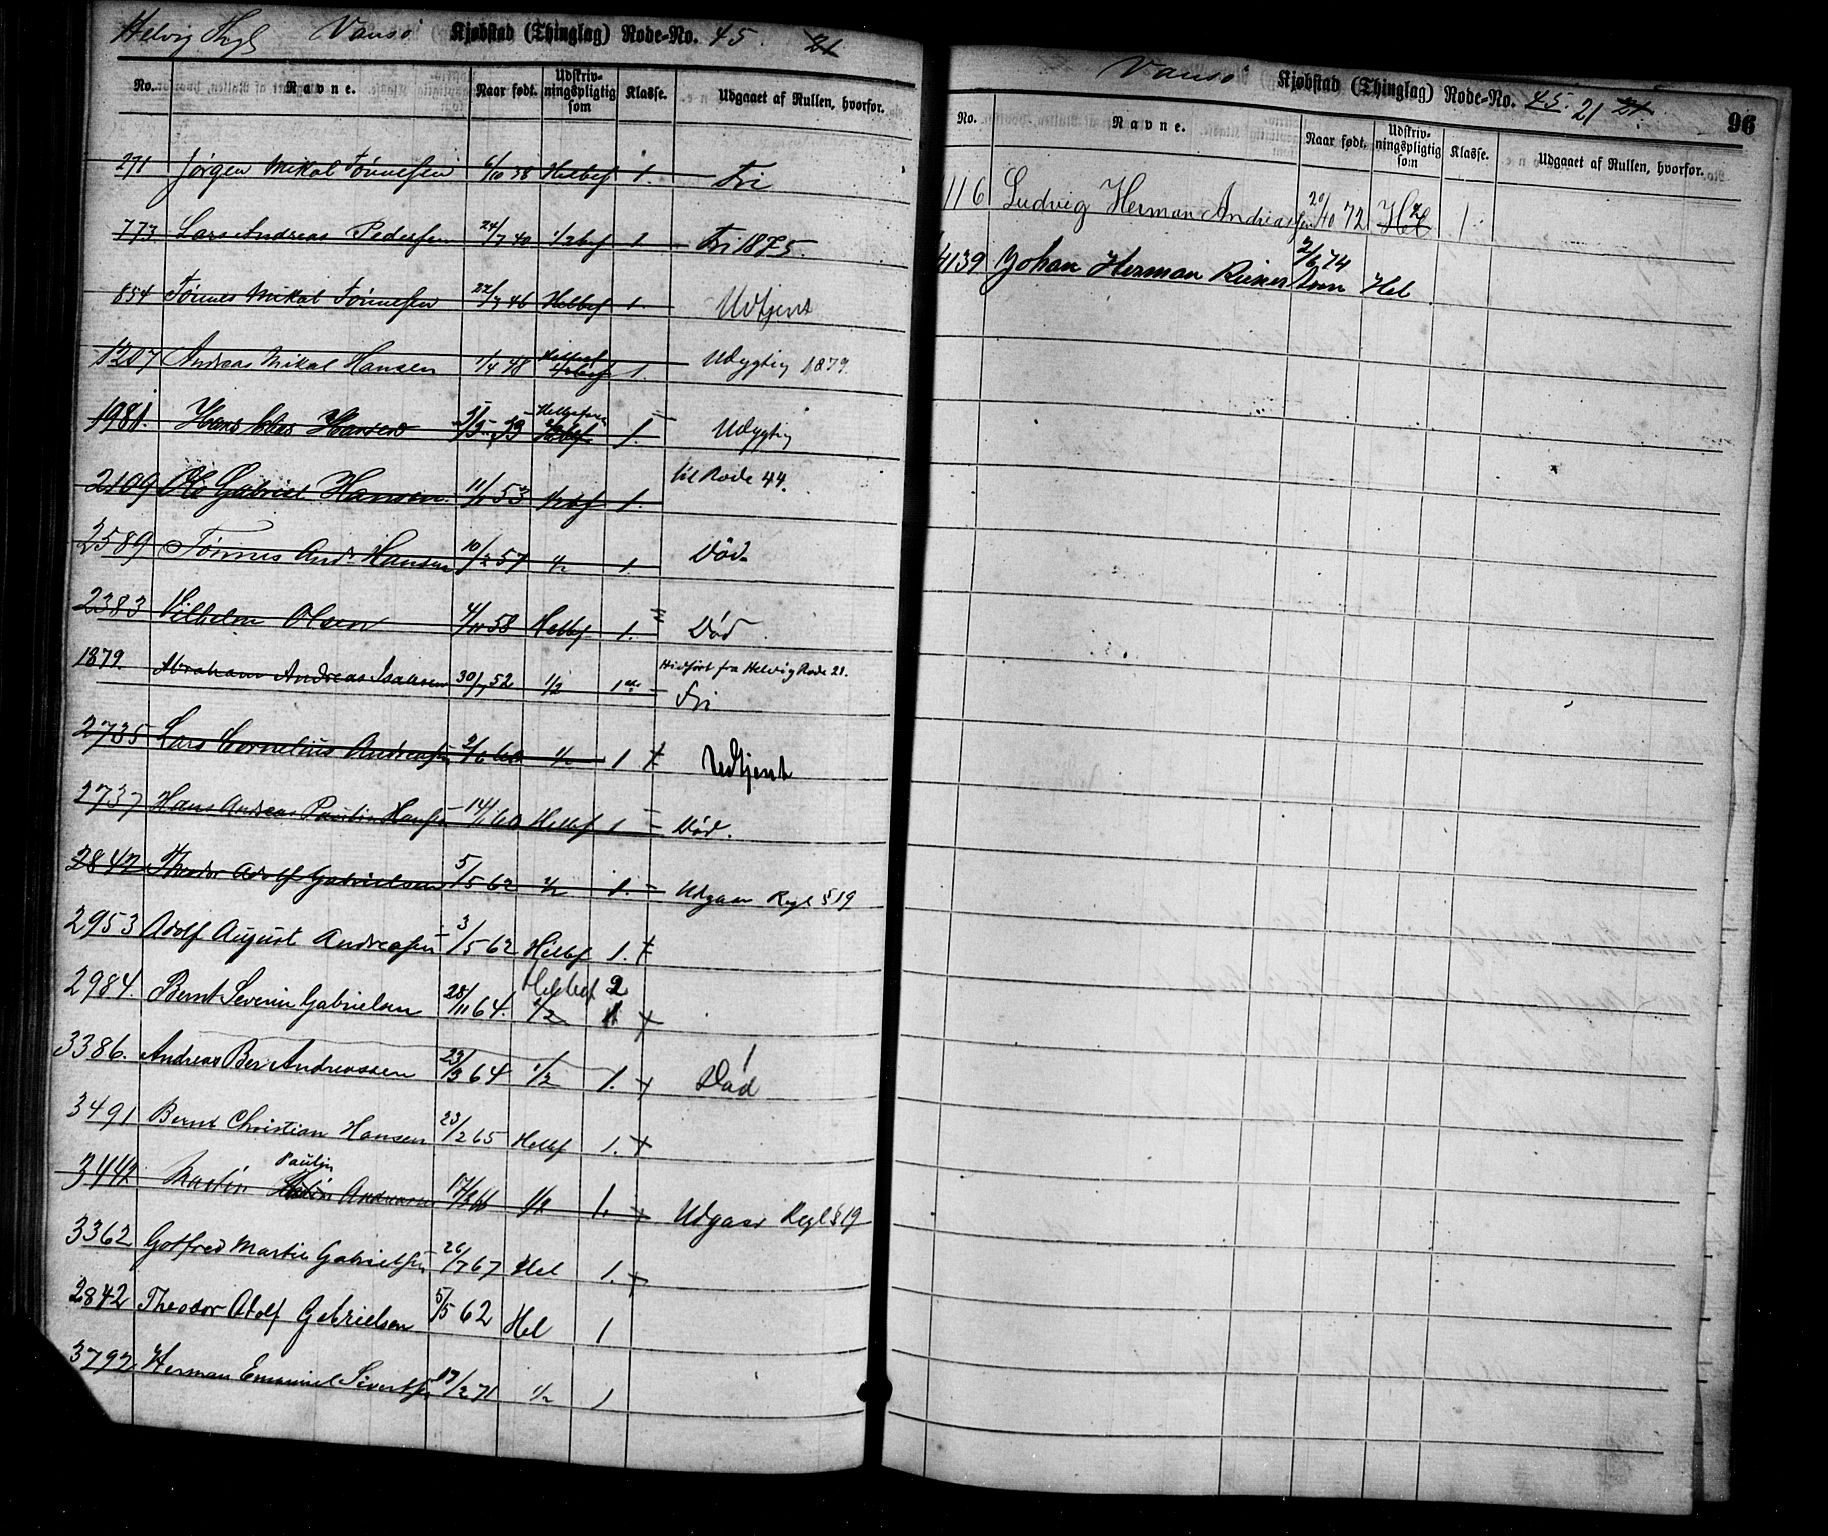 Helvig Thgl Vansø Kjøbstad (Thinglag) Rode-No. 45. 21
No. Navne. Naar født. Udskriv-ningspligtig som Klasse. Udgaaet af Rullen, hvorfor.
271 Jørgen Mikal Tønnessen 6/10 38 Helbef 1. Fri
773 Lars Andreas Pedersen 24/7 40 1/2bef 1 Fri 1875.
854 Tønnes Mikal Tønnessen 22/7 46 Helbef 1. Udtjent
1207 Andreas Mikal Hansen 1/4 48 Helbef 1/2bef 1. Udygtig 1879.
1981. Hans Hansen 53 1. Udygtig
2109 Ole Gabriel Hansen 53 1/2bf 1. til Rode 44.
2589 Tønnes Andr. Hansen 10/2 57 1/2 1. Død
2383 Vilhelm Olsen 4/11 58 Helbf 1. Død
1879. Abraham Andreas Isaksen 30/7 52 1/2 1ste Hidført fra Helvig Rode 21.
Fri
2735 Lars Cornelius Andreassen 2/6 60 1/2 1 Udtjent
2737 Hans Andreas Paulin Hansen 14/1 60 Helbf 1 Død.
2842 Theodor Adolf Gabrielsen 5/5 62 1/2 1. Udgaar Regl § 19
2953 Adolf August Andreassen 3/5 62 Helbf 1.
2984. Bernt Severin Gabrielsen 28/11 64. Helbef 1/2 2 1
3386. Andreas Ber Andreassen 23/3 64 1/2 1. Død
3491 Bernt Christian Hansen 23/2 65 Helbf 1.
3442 Martin Paulin Andreassen 1/2 1. Udgaar Regl § 19
3362 Gotfred Martin Gabrielsen 26/7 67 Hel 1.
2842 Theodor Adolf Gabrielsen 5/5 62 Hel 1
3792 Herman Emanuel Sivertsen 17/2 71 1/2 1
Vansø Kjøbstad (Thinglag) Rode-No. 45. 21 21. 96
No. Navne. Naar født. Udskriv-ningspligtig som Klasse. Udgaaet af Rullen, hvorfor.
116 Ludvig Herman Andreassen 20/10 72 Hel 1
4139 Johan Herman Reinertsen 2/6 74 Hel